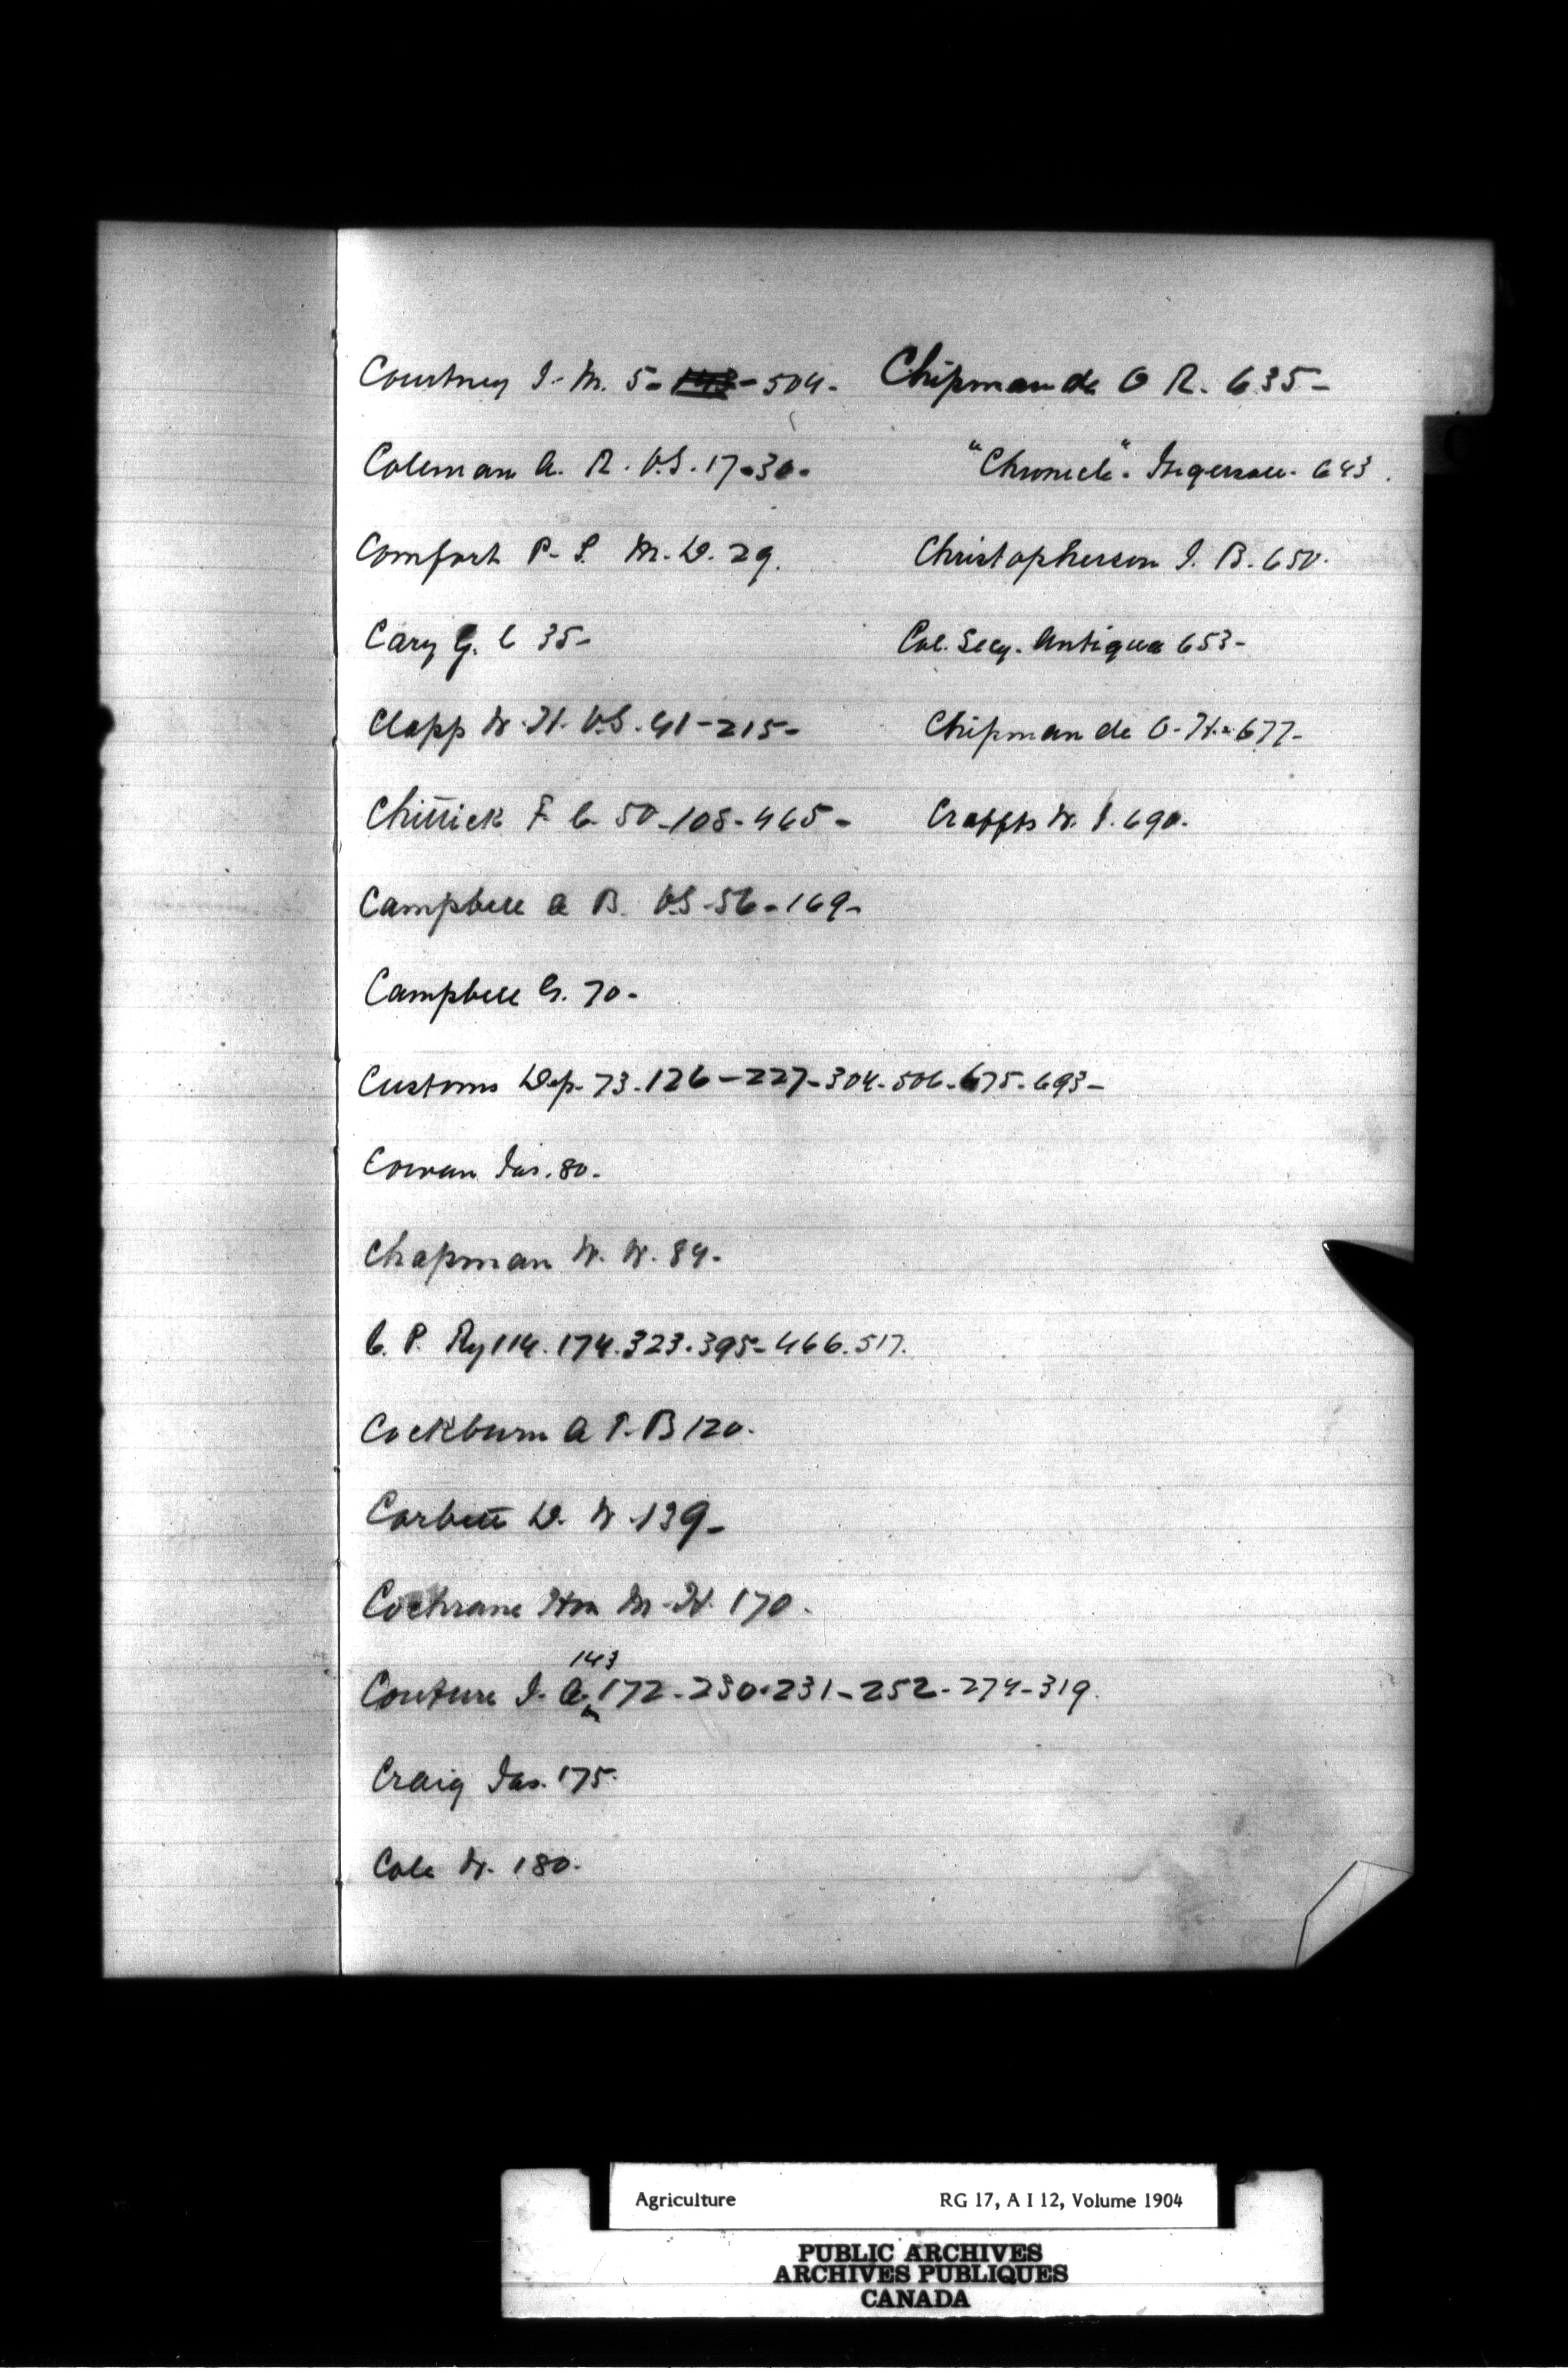 Courtney J. M. 5- 143 - 504-
Coleman A. R. V.S. 17-30-
Comfort P. S. M. D. 29.
Cary G. C 35-
Clapp W. H. V.S. 41-215-
Chittick F. C. 50-108-465-
Campbell A B. V.S-56-169-
Campbell G. 70-
Customs Dep. 73.126-227-304-506-675-693-
Cowan Jas. 80-
Chapman W. W. 84-
C. P. Ry 114.174.323.395-466.517.
Cockburn A P. B 120.
Corbett D. W. 139-
Cochrane Hon M. H. 170.
143
Couture J. A. ^ 172-230-231-252-274-319.
Craig Jas. 175.
Cole W. 180.
Chipman de O R. 635-
"Chronicle" Ingersoll 643.
Christopherson J. B. 650.
Col. Secy. Antigua 653-
Chipman de O. H. 677-
W. J. 690.
C
Agriculture RG 17, A I 12, Volume 1904
PUBLIC ARCHIVES
ARCHIVES PUBLIQUES
CANADA